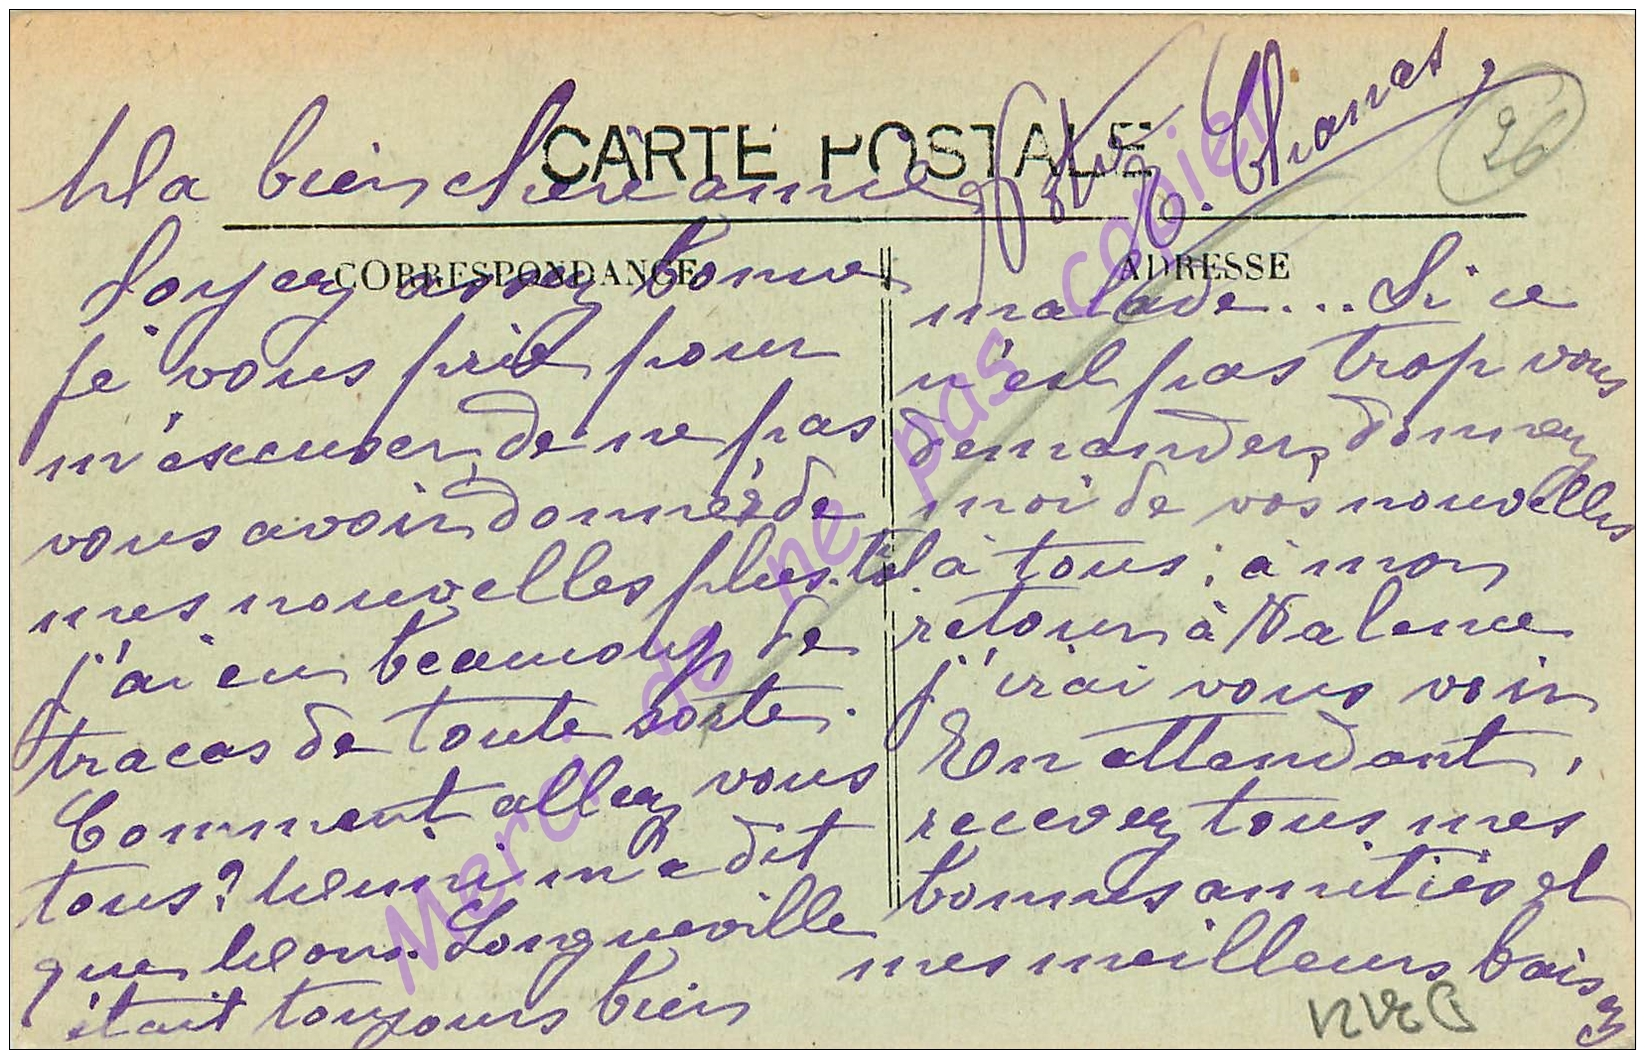 CARTE POSTALE
Ma bien chère amie
CORRESPONDANCE
Soyez assez bonne
je vous prie pour
m'excuser, de ne pas
vous avoir, donner de
mes nouvelles plus tôt.
j'ai eu beaucoup de
tracas de toute sorte.
Comment allez vous
tous? Henri m'a dit
que Mons. Longueville
était toujours bien
ADRESSE
malade... Si ce
n'est pas trop vous
demander, donnez
moi de vos nouvelles
à tous; à mon
retour à Valence
j'irai vous voir
En attendant,
recevez tous mes
bonnes amitiés et
mes meilleurs baisers
E. Thomas
26
Merci de ne pas copier